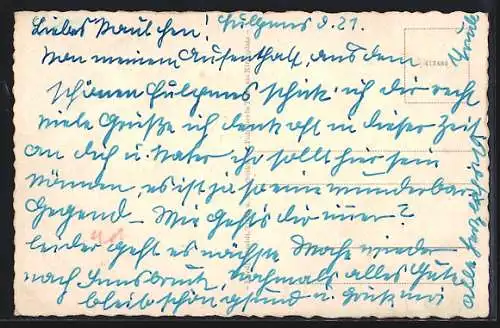 Liebes Paulchen! Fulpmes d. 21.
Von meinem Aufenthalt aus dem
schönen Fulpmes schick ich dir recht
viele Grüße ich denk oft in dieser Zeit
an dich u. Vater ihr sollt hier sein
können, es ist ja so eine wunderbare
Gegend - Wie geht's dir immer?
leider geht es nächste Woche wieder
nach Innsbruck, nochmals alles Gute
bleib schön gsund u. grüß mir
alle herzlichst